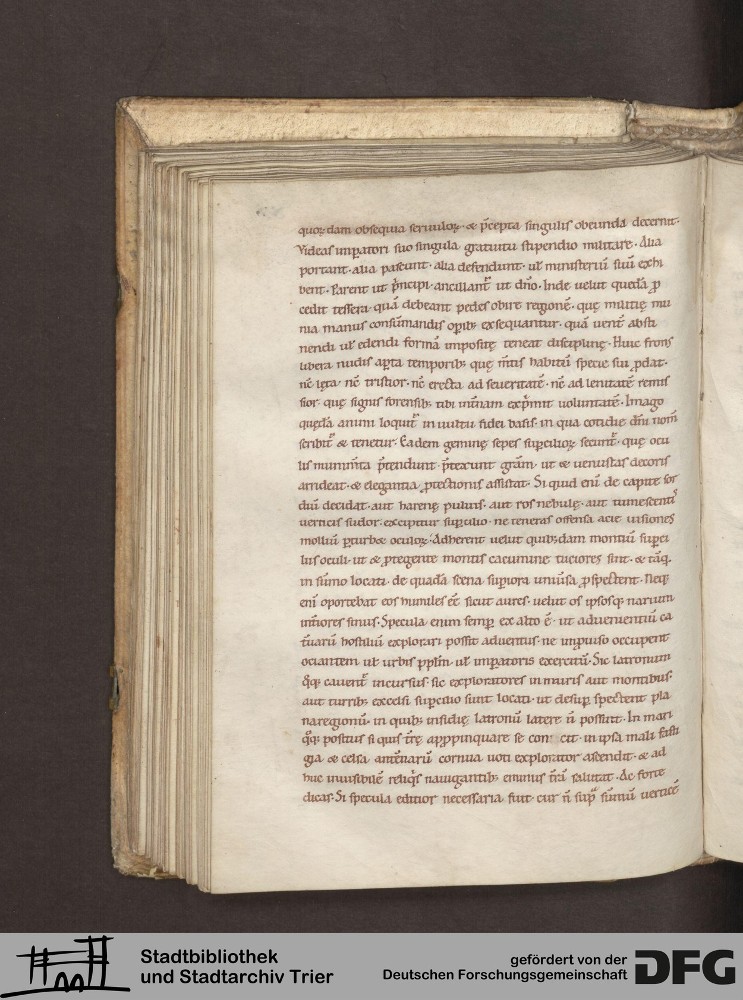 quordam obsequia seruulor · & p̄cepta singulis obeunda decernit·
Videas imꝑatori suo singula gratuitu stipendio militare · Alia
portant · alia pascunt · alia defendunt · ul̄ ministeriū suū exhi
bent · Parent ut p̄ncipi · ancillant̄ ut dn̄o · Inde uelut quedā ꝓ
cedit tessera · quā debeant pedes obire regionē · quę militię mu
nia manus consūmandis opib; exsequantur · quā uent̄ absti
nendi ul̄ edendi formā impositę teneat disciplinę · Huic frons
libera nudis aꝑta temporib; quę m̄tis habitū specie sui ꝓdat·
nē lęta · nē tristior · nē erecta ad seueritatē · nē ad lenitatē remis
sior · quę signis forensib; tibi int̄nam exp̄mit uoluntatē · Imago
quędā animi loquit̄ in uultu · fidei basis · in qua cotidie dn̄i nom̄
scribit̄ & tenetur · Eadem geminę sepes suꝑcilior secunt̄ · quę ocu
lis munim̄ta p̄tendunt · p̄texunt grām · ut & uenustas decoris
arrideat · & elegantia ꝓtectionis assistat · Si quid eni de capite sor
diū decidat · aut harenę puluis · aut ros nebulę · aut tumescentis
uerticis sudor · excipitur suꝑcilio · ne teneras offensa acie uisiones
molliū ꝑturbet oculor · Adherent uelut quib;dam montiū suꝑci
liis oculi · ut & ꝓtegente montis cacumine tuciores sint · & tāq·
in sūmo locati · de quadā scena suꝑiora uniū̄sa ꝓspectent · Neq;
enī oportebat eos humiles eē sicut aures · uelut os ipsosq; narium
int̄iores sinus · Specula enim semꝑ ex alto ē · ut aduenientiū ca
t̄uarū hostiliū explorari possit aduentus · ne improuiso occupent
ociantem ul̄ urbis ppl̄m · ul̄ imꝑatoris exercitū · Sic latronum
q̊q; cauent̄ incursus · sic exploratores in muris aut montibus·
aut turrib; excelsi suꝑcilio sunt locati · ut desuꝑ spectent pla
na regionū · in quib; insidię latronū latere n̄ possint · In mari
q̊q; positus si quis t̄rę appropinquare se con cit · in ipsa mali fasti
gia & celsa antēnarū cornua uoti explorator ascendit · & ad
huc inuisibilē reliq̄s nauigantib; eminus t̄rā salutat · Ac forte
dicas · Si specula editior necessaria fuit · cur n̄ suꝑ sūmū uerticē
Stadtbibliothek
und Stadtarchiv Trier
gefördert von der
Deutschen Forschungsgemeinschaft
DFG